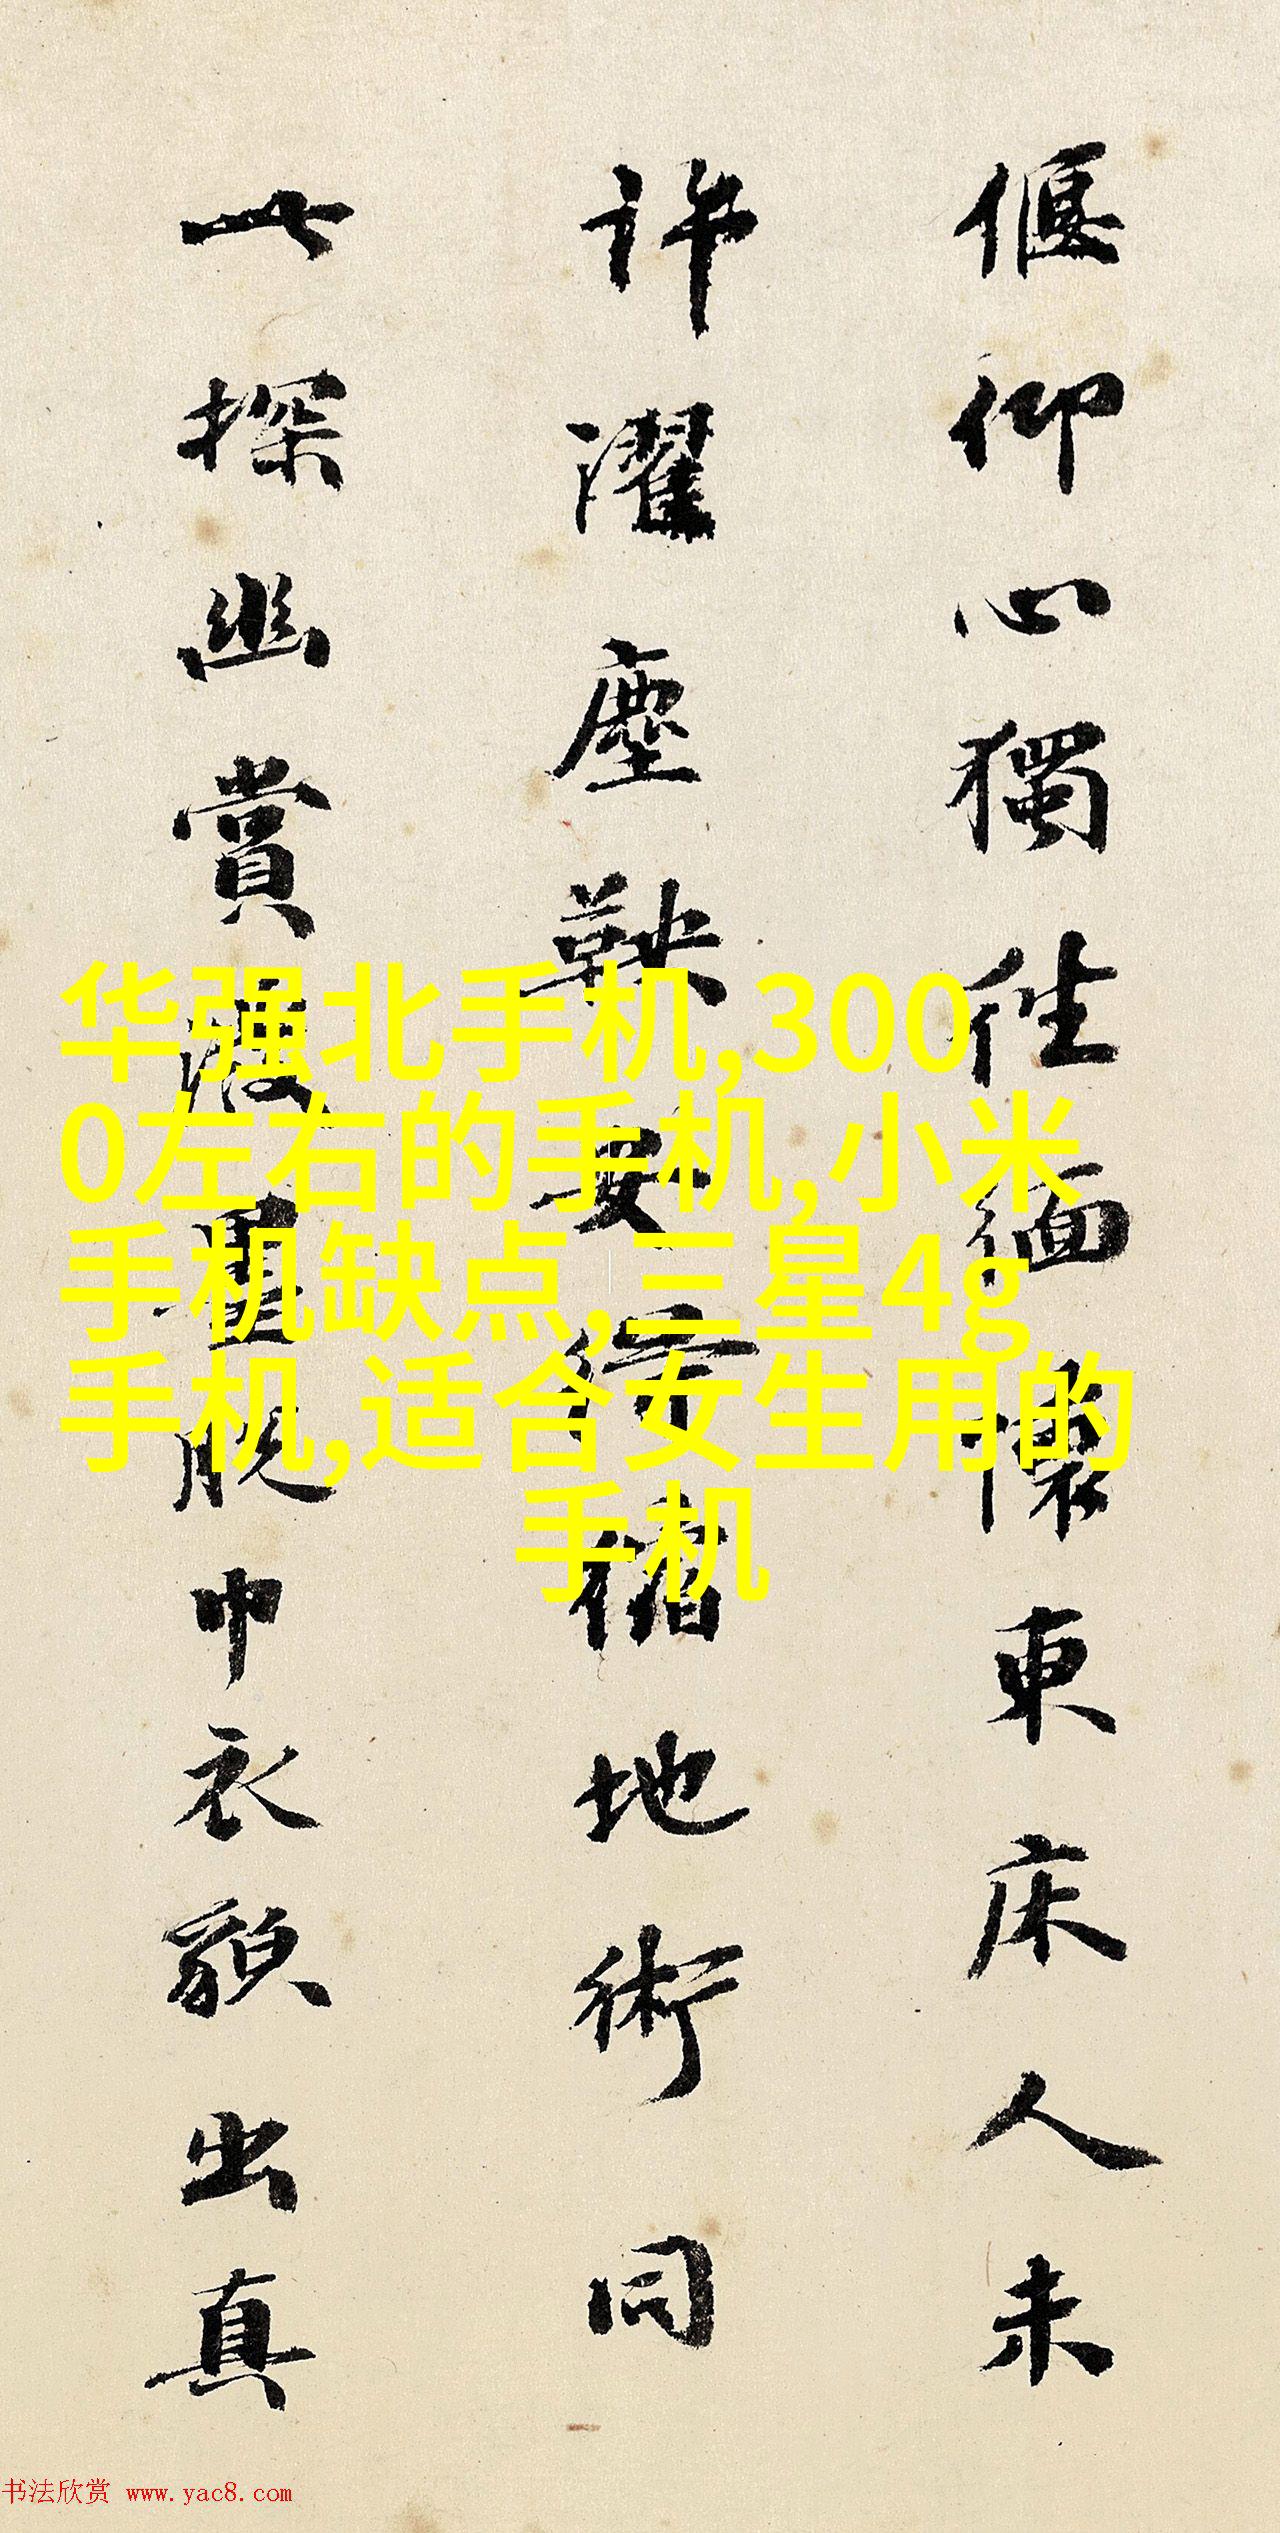 偃仰心獨往緬懷東床人未
許濯塵鞅安得縮地術同
此探幽賞脫巾衣貌出真
华强北手机,300
0左右的手机,小米
手机缺点,三星4g
手机,适合女生用的
手机
书法欣赏 www.yac8.com